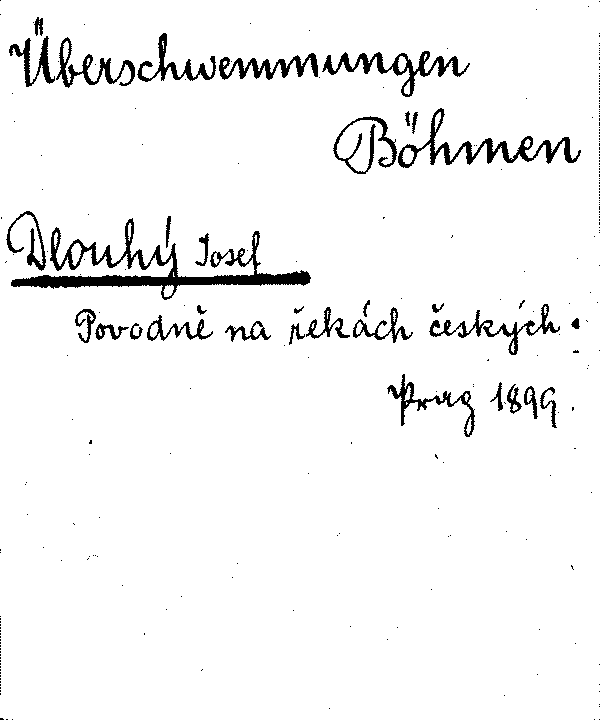 Überschwemmungen
Böhmen
Dlouhý Josef
Povodně na řekách českých.
Prag 1899.